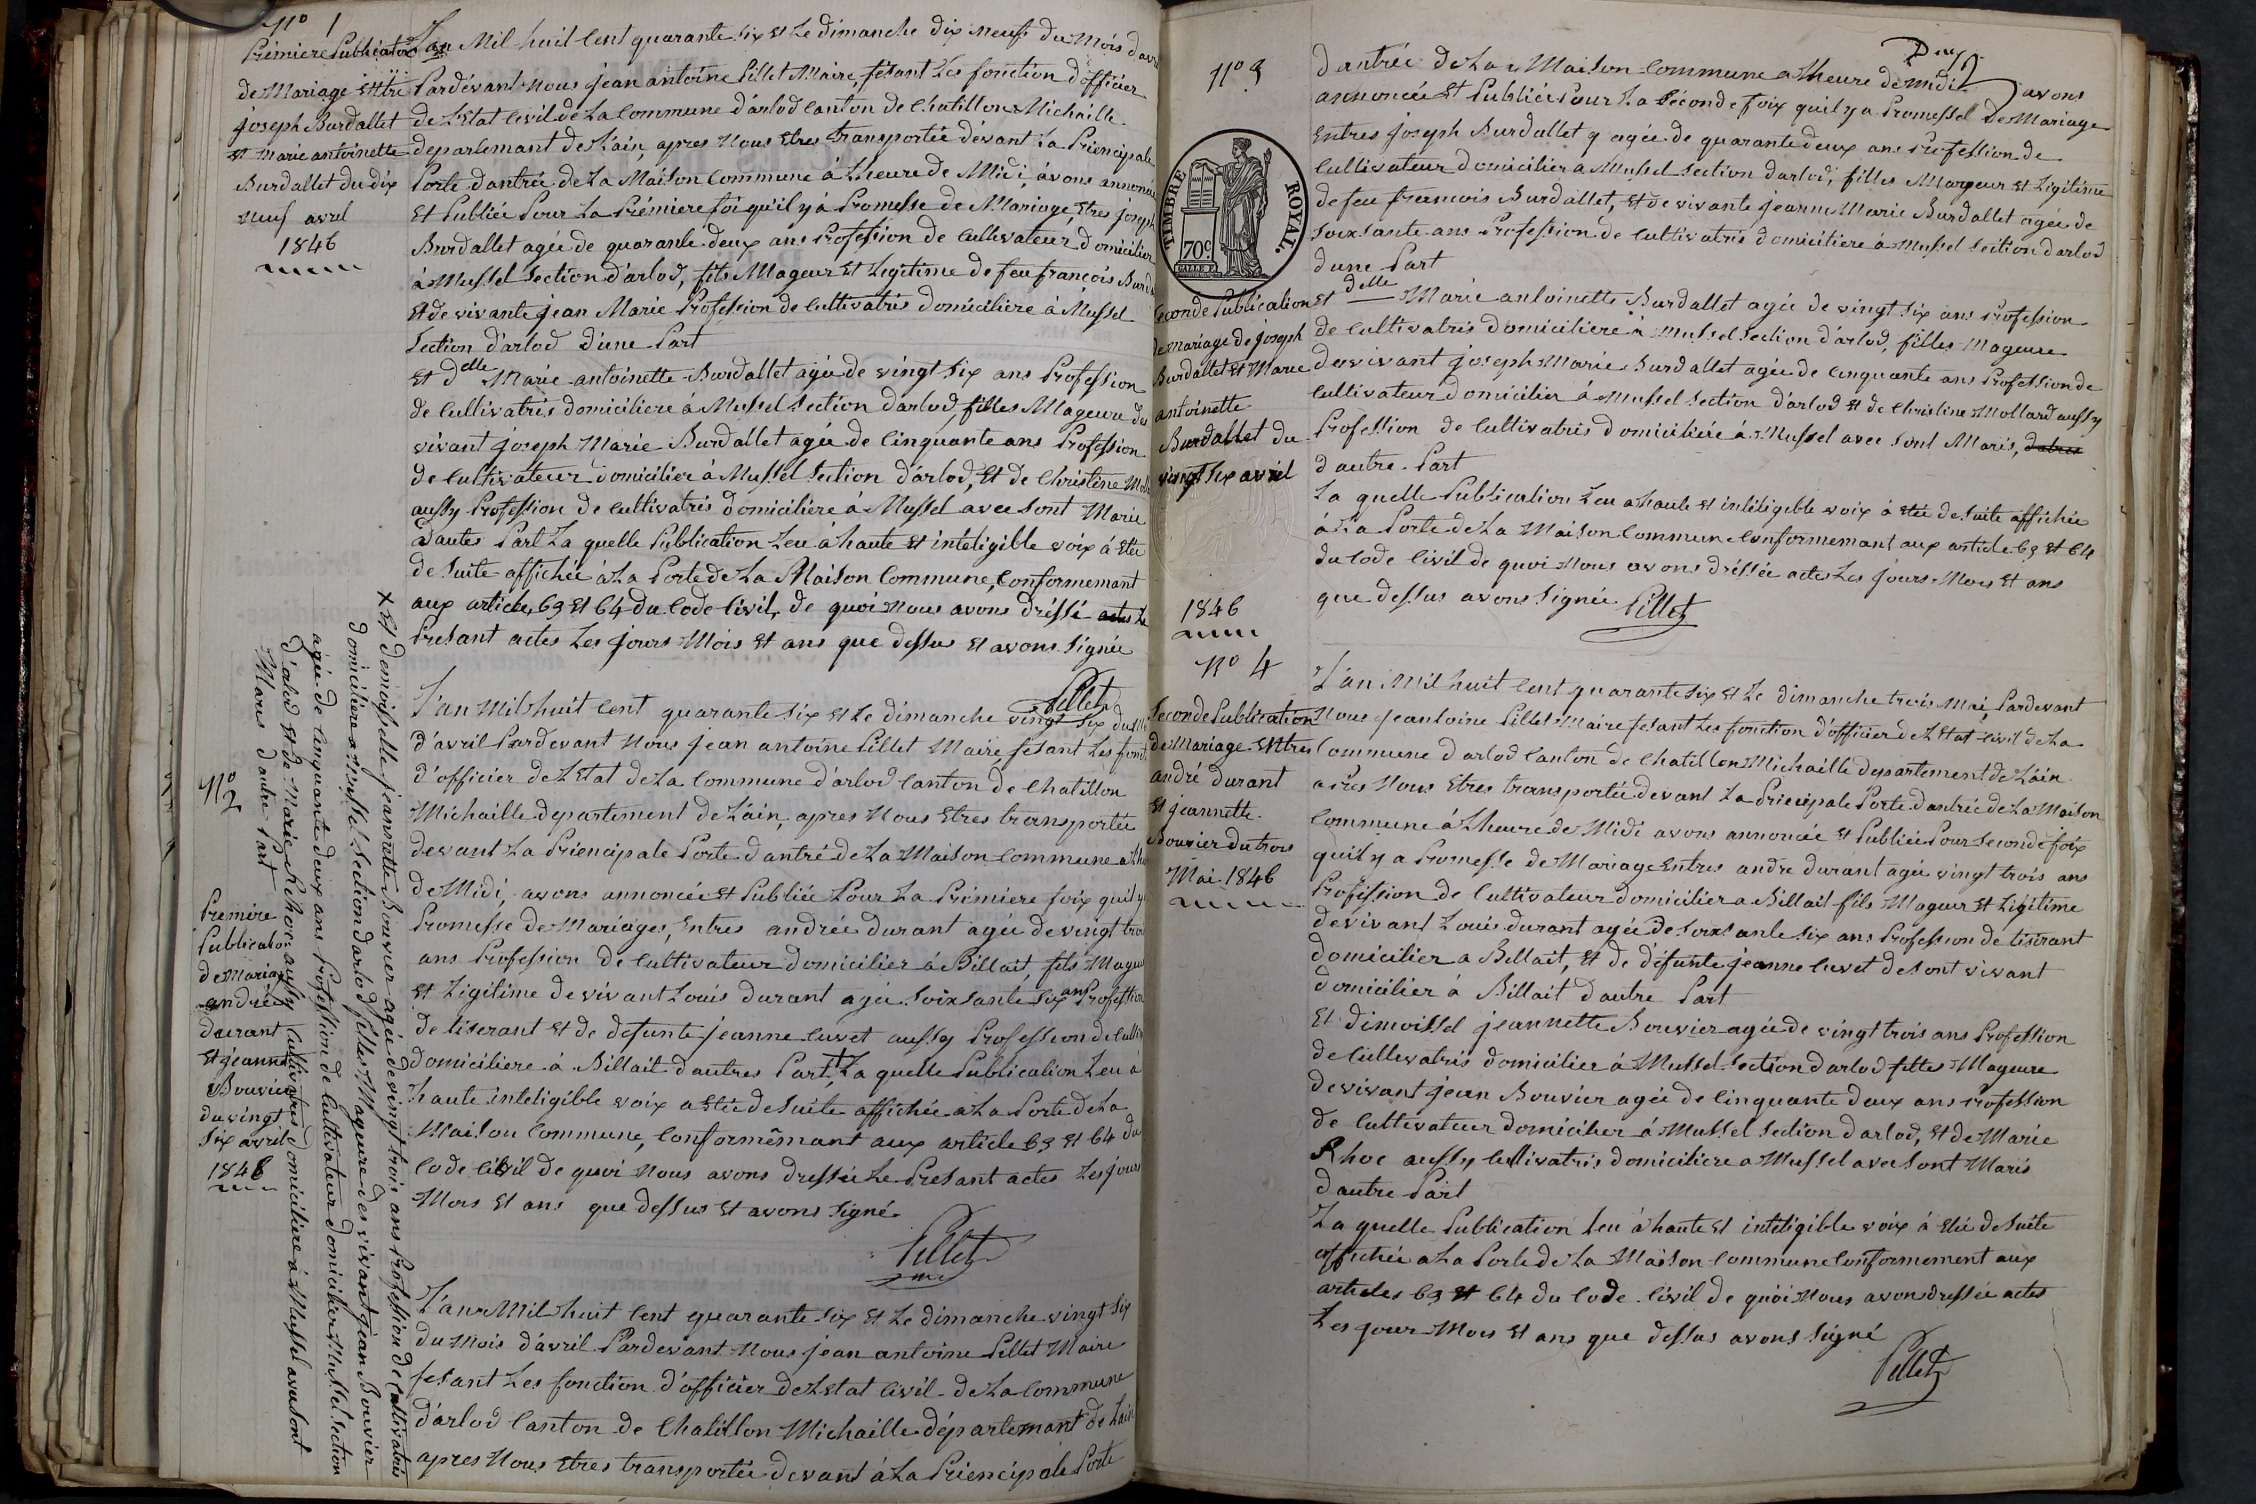 N° 1
Prémiere Publication
de Mariage Entre
joseph Burdallet
et marie antoinette
Burdallet du dix
neuf avril
1846
L'an Mil huit Cent quarante six et Le dimanche dix neuf du Mois d'avr
Pardévant nous jean antoine Pillet Maire fésant Les fonction d'officier
de L'Etat Civil de La Commune d'arlod Canton de Chatillon Michaille
departemant de L'ain, apres Nous Etres transportée dévant La Priencipale
Porte d'antrée de La Maison Commune à L'heure de Midi, avons annoncé
Et Publiée Pour La Prémiere foi qu'il y à Promesse de Mariage, Etres joseph
Burdallet agée de quarante deux ans Profession de Cultivateur domicilier
à Mussel Section d'arlod, fils Mageur Et Legitime de feu françois Burd
Et de vivante jean Marie Profession de Cultivatris domiciliere à Mussel
Section d'arlod d'une Part
Et Delle Marie antoinette Burdallet agée de vingt six ans Profession
de Cultivatris domiciliere à Mussel Section d'arlod, filles Mageure de
vivant joseph Marie Burdallet agée de Cinquante ans Profession
de Cultivateur domicilier à Mussel Section d'arlod, Et de Christine Moll
aussy Profession de Cultivatris domiciliere à Mussel avec sont Marie
d'autes Part La quelle Publication Leu à haute Et inteligible voix à Etée
de suite affichée à La Porte de La Maison Commune, Conformemant
aux articles 63 Et 64 du Code Civil, de quoi nous avons dréssé actes Le
Présant actes Les jours Mois Et ans que dessus Et avons Signée
Pillet
N° 2
Premire
Publication
de mariag
andrée
durant
Et jeannet
Bouvier
du vingt
six avril
1846
L'an Mil huit Cent quarante six et Le dimanche vingt six du M
d'avril Pardevant Nous jean antoine Pillet Maire fesant Les fonct
d'officier de L'Etat de La Commune d'arlod Canton de Chatillon
Michaille departement de L'ain, apres Nous Etres transportée
devant La Priencipale Porte d'antré de La Maison Commune a Lh
de Midi, avons annoncée Et Publiée Pour La Prémiere foix qu'il y
Promesse de Mariages, Entres andrée durant agée de vingt troi
ans Profession de Cultivateur domicilier à Billait, fils Mageu
Et Ligitime de vivant Louis durant agée Soixsante six ans Profession
de tiserant Et de defunte jeanne Cuvet aussy Profession de Culti
domiciliere à Billait d'autres Part, + La quelle Publication Leu à
haute inteligible voix a Etée de suite affichée a La Porte de La
Maison Commune, Conformêmant aux article 63 Et 64 du
Code Civil de quoi nous avons dressée Le Présant actes Les jours
Mois Et ans que dessus Et avons Signé
Pillet
+ Et demoisselle jeannette Bouvier agée de vingt trois ans Profession de Cultivatris
domiciliere a Mussel Section d'arlod filles Mageure des vivant jean Bouvier
agée de Cinquante deux ans Profession de Cultivateur domicilier a Mussel Section
d'arlod Et de Marie Rehoc aussy Cultivatris domiciliere à Mussel avec sont
Maris d'autre Part
L'ans Mil huit Cent quarante six Et Le dimanche vingt six
du Mois d'avril Pardevant Nous jean antoine Pillet Maire
fesant Les fonction d'officier de L'Etat Civil de La Commune
d'arlod Canton de Chatillon Michaille départemant de L'ain
apres Nous Etres transportée devant à La Priencipale Porte
N° 3
TIMBRE ROYAL
70c
Seconde Publication
de mariage de joseph
Burdallet Et Marie
antoinette
Burdallet du
vingt six avril
1846
d'antrée de La Maison Commune a L'heure de midi avons
annoncée Et Publiée Pour La Séconde foix qu'il y a Promessel De Mariage
Entres joseph Burdallet y agée de quarante deux ans Profession de
Cultivateur domicilier a Mussel Section d'arlod, filles Mageur Et Ligitime
de feu francois Burdallet, Et de vivante jeanne Marie Burdallet agée de
Soixsante ans Profession de Cultivatris domiciliere à Mussel Section d'arlod
d'une Part
Et Delle Marie antoinette Burdallet agée de vingt six ans Profession
de Cultivatris domiciliere à Mussel Section d'arlod, filles Mageure
de vivant joseph Marie Burdallet agée de Cinquante ans Profession de
Cultivateur domicilier à Mussel Section d'arlod Et de Christine Mollard aussy
Profession de Cultivatris domiciliére à Mussel avec sont Maris, d'autres
d'autre Part
La quelle Publication Leu a haute Et inteligible voix à Etée de suite affichée
à La Porte de La Maison Commune Conformemant aux article 63 Et 64
du Code Civil de quoi nous avons dréssée actes Les jours Mois Et ans
que dessus avons Signée Pillet
N° 4
Seconde Publication
de Mariage Entres
andré durant
Et jeannette
Bouvier du trois
Mai 1846
L'an Mil huit Cent quarante six Et Le dimanche trois Mai, Pardevant
Nous jeantoine Pillet Maire fesant Les fonction d'officier de L'Etat Civil de La
Commune d'arlod Canton de Chatillon Michaille departement de L'ain
apres Nous Etres transportée devant La Priencipale Porte d'antrée de La Maison
Commune à L'heure de Midi avons annoncée Et Publiée Pour seconde foix
qu'il y a Promesse de Mariage Entres andre durant agée vingt trois ans
Profession de Cultivateur domicilier a Billait fils Mageur Et Ligitime
de vivant Louis durant agée de Soixsante six ans Profession de tiserant
domicilier a Billait, Et de défunte jeanne Cuvet de sont vivant
domicilier à Billait d'autre Part
Et dimoissel jeannette Bouvier agée de vingt trois ans Profession
de Cultivatris domicilier à Mussel Section d'arlod filles Mageure
de vivant jean Bouvier agée de Cinquante deux ans Profession
de Cultivateur domicilier à Mussel Section d'arlod, Et de Marie
Rhoc aussy Cultivatris domiciliere a Mussel avec sont Maris
d'autre Part
La quelle Publication Leu à haute Et inteligible voix à Etée de suite
affichée a La Porte de La Maison Commune Conformement aux
articles 63 Et 64 du Code Civil de quoi nous avon dressée actes
Les jour Mois Et ans que dessus avons Signé
Pillet